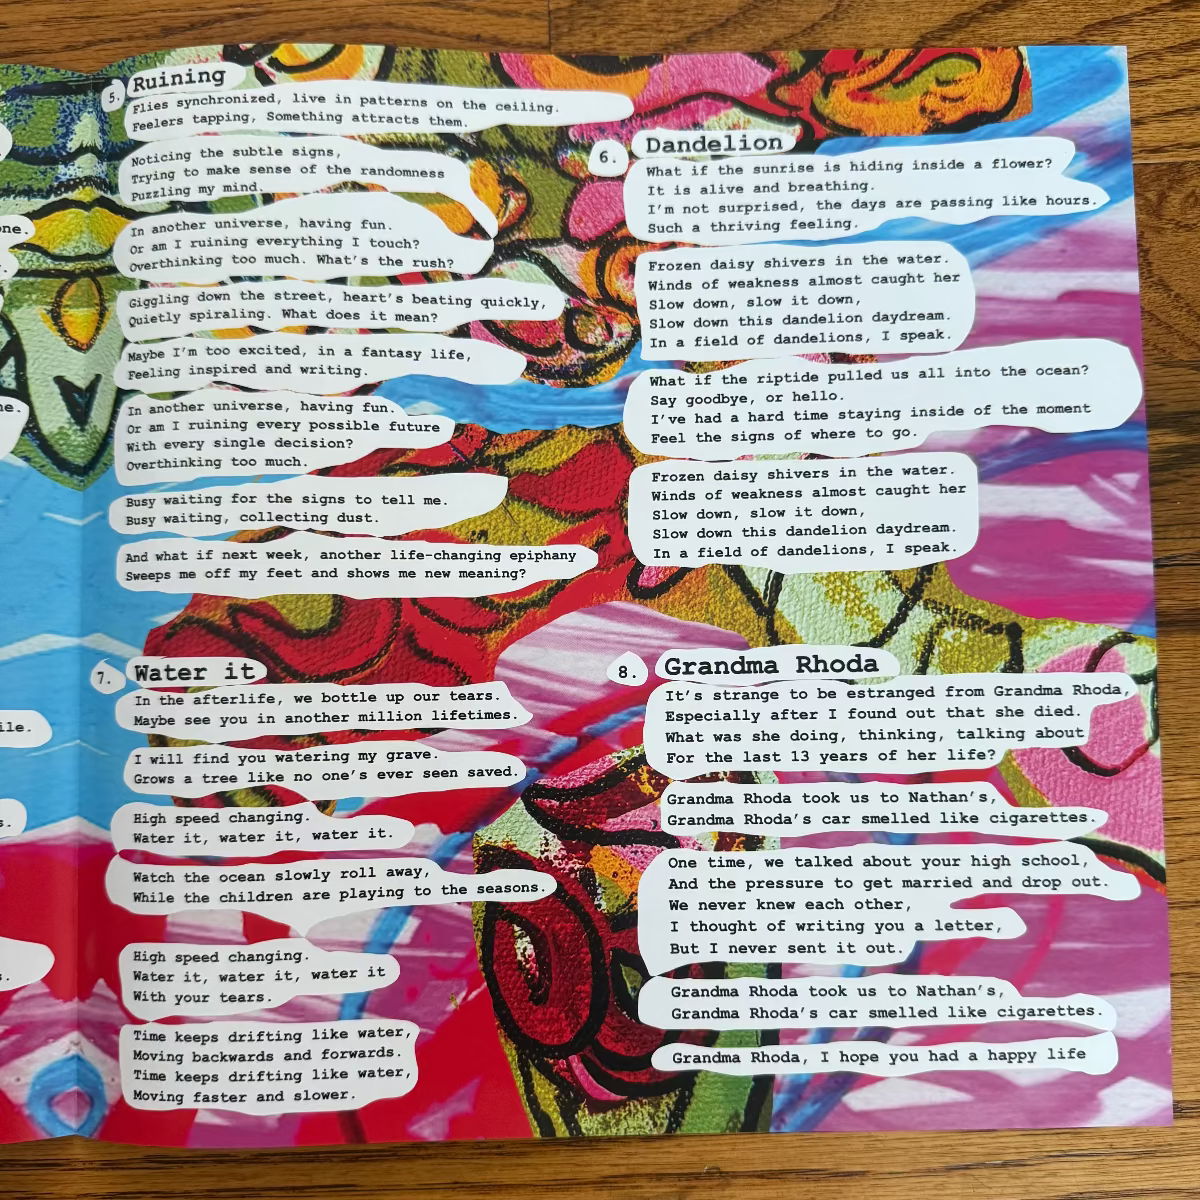 one.
me.
ile.
s.
s.
5. Ruining
Flies synchronized, live in patterns on the ceiling.
Feelers tapping, Something attracts them.
Noticing the subtle signs,
Trying to make sense of the randomness
Puzzling my mind.
In another universe, having fun.
Or am I ruining everything I touch?
Overthinking too much. What's the rush?
Giggling down the street, heart's beating quickly,
Quietly spiraling. What does it mean?
Maybe I'm too excited, in a fantasy life,
Feeling inspired and writing.
In another universe, having fun.
Or am I ruining every possible future
With every single decision?
Overthinking too much.
Busy waiting for the signs to tell me.
Busy waiting, collecting dust.
And what if next week, another life-changing epiphany
Sweeps me off my feet and shows me new meaning?
6. Dandelion
What if the sunrise is hiding inside a flower?
It is alive and breathing.
I'm not surprised, the days are passing like hours.
Such a thriving feeling.
Frozen daisy shivers in the water.
Winds of weakness almost caught her
Slow down, slow it down,
Slow down this dandelion daydream.
In a field of dandelions, I speak.
What if the riptide pulled us all into the ocean?
Say goodbye, or hello.
I've had a hard time staying inside of the moment
Feel the signs of where to go.
Frozen daisy shivers in the water.
Winds of weakness almost caught her
Slow down, slow it down,
Slow down this dandelion daydream.
In a field of dandelions, I speak.
7. Water it
In the afterlife, we bottle up our tears.
Maybe see you in another million lifetimes.
I will find you watering my grave.
Grows a tree like no one's ever seen saved.
High speed changing.
Water it, water it, water it.
Watch the ocean slowly roll away,
While the children are playing to the seasons.
High speed changing.
Water it, water it, water it
With your tears.
Time keeps drifting like water,
Moving backwards and forwards.
Time keeps drifting like water,
Moving faster and slower.
8. Grandma Rhoda
It's strange to be estranged from Grandma Rhoda,
Especially after I found out that she died.
What was she doing, thinking, talking about
For the last 13 years of her life?
Grandma Rhoda took us to Nathan's,
Grandma Rhoda's car smelled like cigarettes.
One time, we talked about your high school,
And the pressure to get married and drop out.
We never knew each other,
I thought of writing you a letter,
But I never sent it out.
Grandma Rhoda took us to Nathan's,
Grandma Rhoda's car smelled like cigarettes.
Grandma Rhoda, I hope you had a happy life